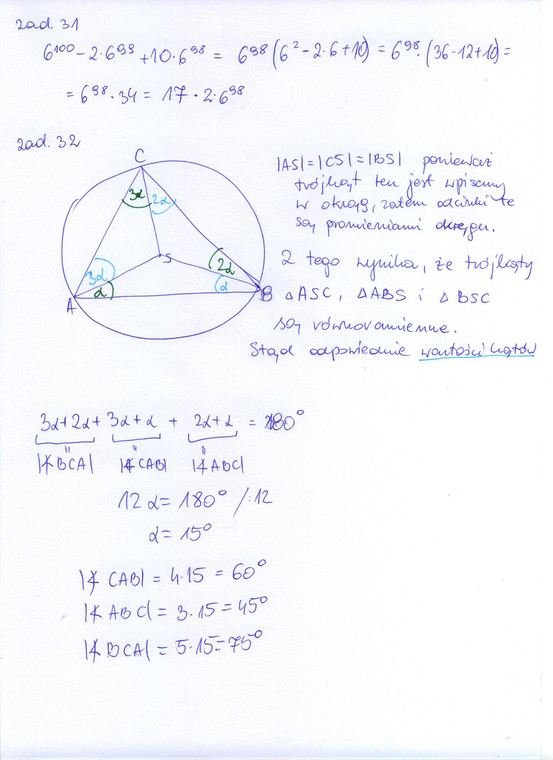 zad. 31
6^100 - 2·6^99 + 10·6^98 = 6^98 (6^2 - 2·6 + 10) = 6^98 · (36-12+10) =
= 6^98 · 34 = 17 · 2·6^98
zad. 32
C
3α 2α
S
3α
α
2α
α
A
B
|AS| = |CS| = |BS| ponieważ
trójkąt ten jest wpisany
w okrąg, zatem odcinki te
są promieniami okręgu.
Z tego wynika, że trójkąty
△ASC, △ABS i △BSC
są równoramienne.
Stąd odpowiednie wartości kątów
3α+2α + 3α+α + 2α+α = 180°
|∡BCA| |∡CAB| |∡ABC|
12α = 180° /:12
α = 15°
|∡ CAB| = 4·15 = 60°
|∡ ABC| = 3·15 = 45°
|∡ BCA| = 5·15 = 75°